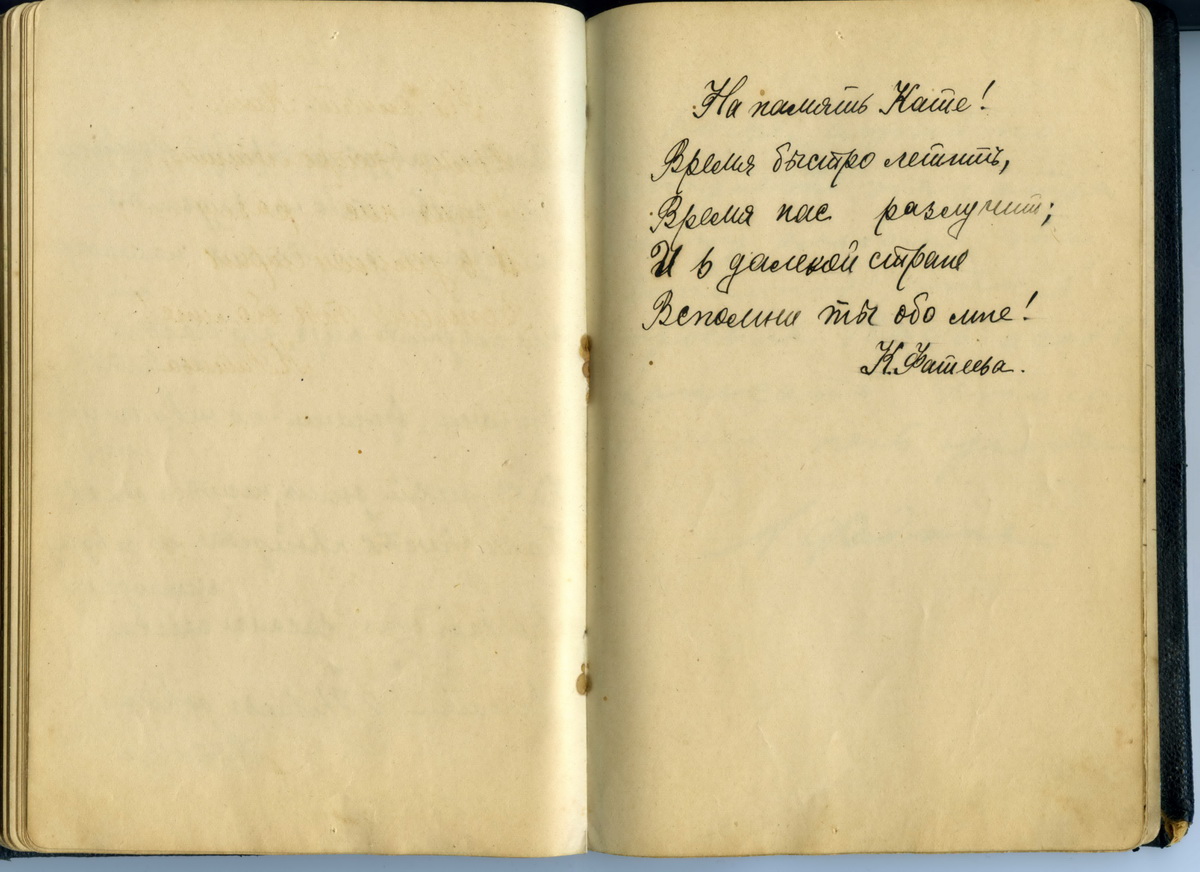 На память Кате!
Время быстро летитъ,
Время нас разлучит;
И в далекой стране
Вспомни ты обо мне!
К. Фатеева.